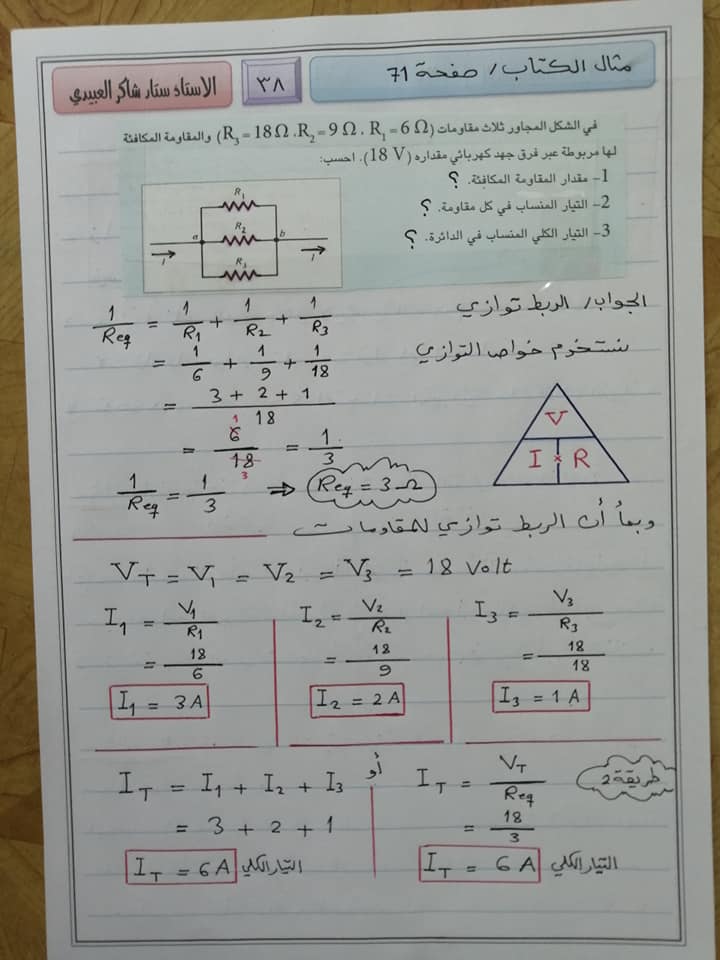 مثال الكتاب / صفحة 71
٣٨
الاستاذ ستار شاكر العبيدي
في الشكل المجاور ثلاث مقاومات (R₃ = 18 Ω ، R₂ = 9 Ω ، R₁ = 6 Ω) والمقاومة المكافئة
لها مربوطة عبر فرق جهد كهربائي مقداره (18 V). احسب:
1- مقدار المقاومة المكافئة. ؟
2- التيار المنساب في كل مقاومة. ؟
3- التيار الكلي المنساب في الدائرة. ؟
R₁
a R₂ b
I R₃ I
الجواب / الربط توازي
نستخدم خواص التوازي
1/Req = 1/R₁ + 1/R₂ + 1/R₃
= 1/6 + 1/9 + 1/18
= (3 + 2 + 1)/18
= 6/18 = 1/3
1 3
1/Req = 1/3 ⇒ Req = 3 Ω
V
I × R
وبما أن الربط توازي للمقاومات
V_T = V₁ = V₂ = V₃ = 18 Volt
I₁ = V₁/R₁
= 18/6
I₁ = 3A
I₂ = V₂/R₂
= 18/9
I₂ = 2A
I₃ = V₃/R₃
= 18/18
I₃ = 1 A
I_T = I₁ + I₂ + I₃
= 3 + 2 + 1
I_T = 6A التيار الكلي
أو
طريقة 2
I_T = V_T/Req
= 18/3
I_T = 6 A التيار الكلي